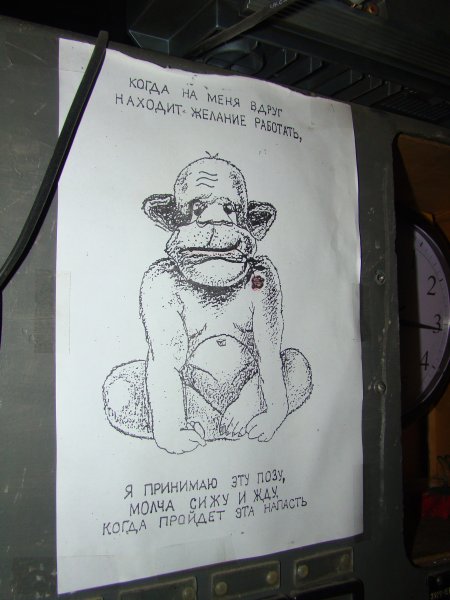 КОГДА НА МЕНЯ ВДРУГ
НАХОДИТ ЖЕЛАНИЕ РАБОТАТЬ,
Я ПРИНИМАЮ ЭТУ ПОЗУ,
МОЛЧА СИЖУ И ЖДУ,
КОГДА ПРОЙДЕТ ЭТА НАПАСТЬ
2
3
4